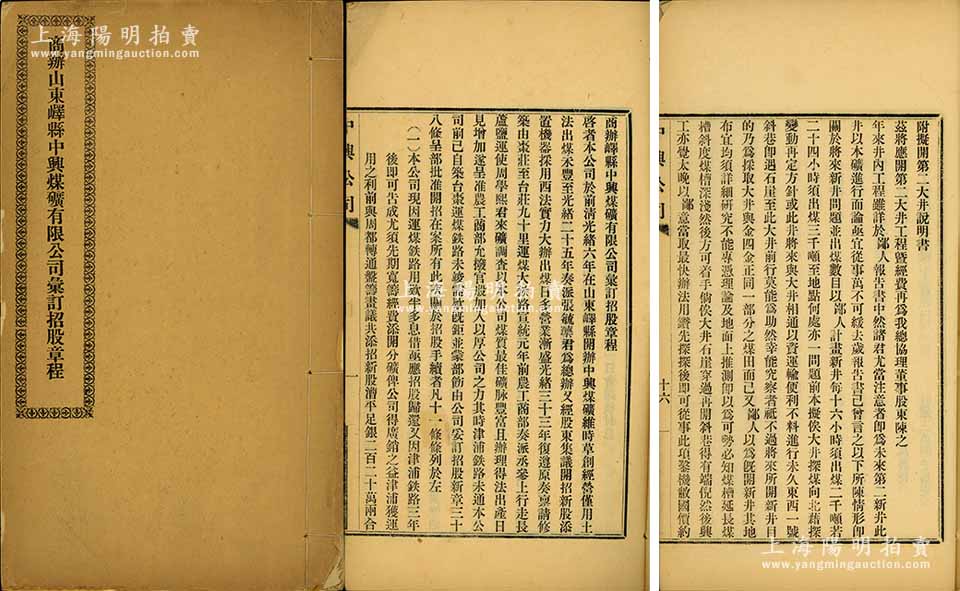 上海陽明拍賣
www.yangmingauction.com
商辦山東嶧縣中興煤礦有限公司彙訂招股章程
上海陽明拍賣
www.yangmingauction.com
商辦嶧縣中興煤礦有限公司彙訂招股章程
啓者本公司於前淸光緒六年在山東嶧縣開辦中興煤礦維時草創經營僅用土
法出煤未豐至光緒二十五年奏派張毓蕖君爲總辦又經股東集議開招新股添
置機器採用西法實力大辦出煤日多營業漸盛光緒三十三年復遵原奏稟請修
築由棗莊至台莊九十里運煤大鐵路宣統元年前農工商部奏派丞參上行走長
蘆鹽運使周學熙君來礦調查以本公司煤質最佳礦脉豐富且辦理得法出產日
見增加遂呈准農工商部允撥官股加入以厚公司之方其時津浦鐵路未通本公
司前已自築台棗運煤鉄路未竣需欵旣鉅並蒙部飭由公司妥訂招股新章三十
八條呈部批准開招在案所有此次關於招股手續者凡十一條條列於左
（一）本公司現因運煤鉄路用欵半多息借亟應招股歸還又因津浦鉄路三年
後即可告成尤須先期寛籌經費添開分礦俾公司得廣銷之益津浦獲運
用之利前與周都轉通盤籌畫議共添招新股濟平足銀二百二十萬兩合
中興公司
一
附擬開第二大井說明書
茲將應開第二大井工程曁經費再爲我總協理董事股東陳之
年來井內工程雖詳於鄙人報告書中然諸君尤當注意者卽爲未來第二新井此
井以本礦進行而論亟宜從事萬不可緩去歲報告書已曾言之以下所陳情形卽
關於將來新井問題並出煤數目以鄙人計畫新井每十六小時須出煤二千噸若
二十四小時須出煤三千噸至地點何處亦一問題前本擬俟大井探煤向北藉探
變動再定方針或此井將來與大井相通以資運輸便利不料進行未久東西一號
斜巷卽遇石崖至此大井前行莫能爲助然幸能究察者祇不過將來所開新井目
的乃爲採取大井與金四金正同一部分之煤田而已又鄙人以爲旣開新井其地
布宜均須詳細研究不能專憑理論及地面上推測卽以爲可勢必知煤槽延長煤
槽斜度煤槽深淺然後方可着手倘俟大井石崖穿過再開斜巷得有端倪然後興
工亦覺太晚以鄙意當取最快辦法用鑽先探探後即可從事此項鑿機敝國價約
中興公司
十六
上海陽明拍賣
www.yangmingauction.com